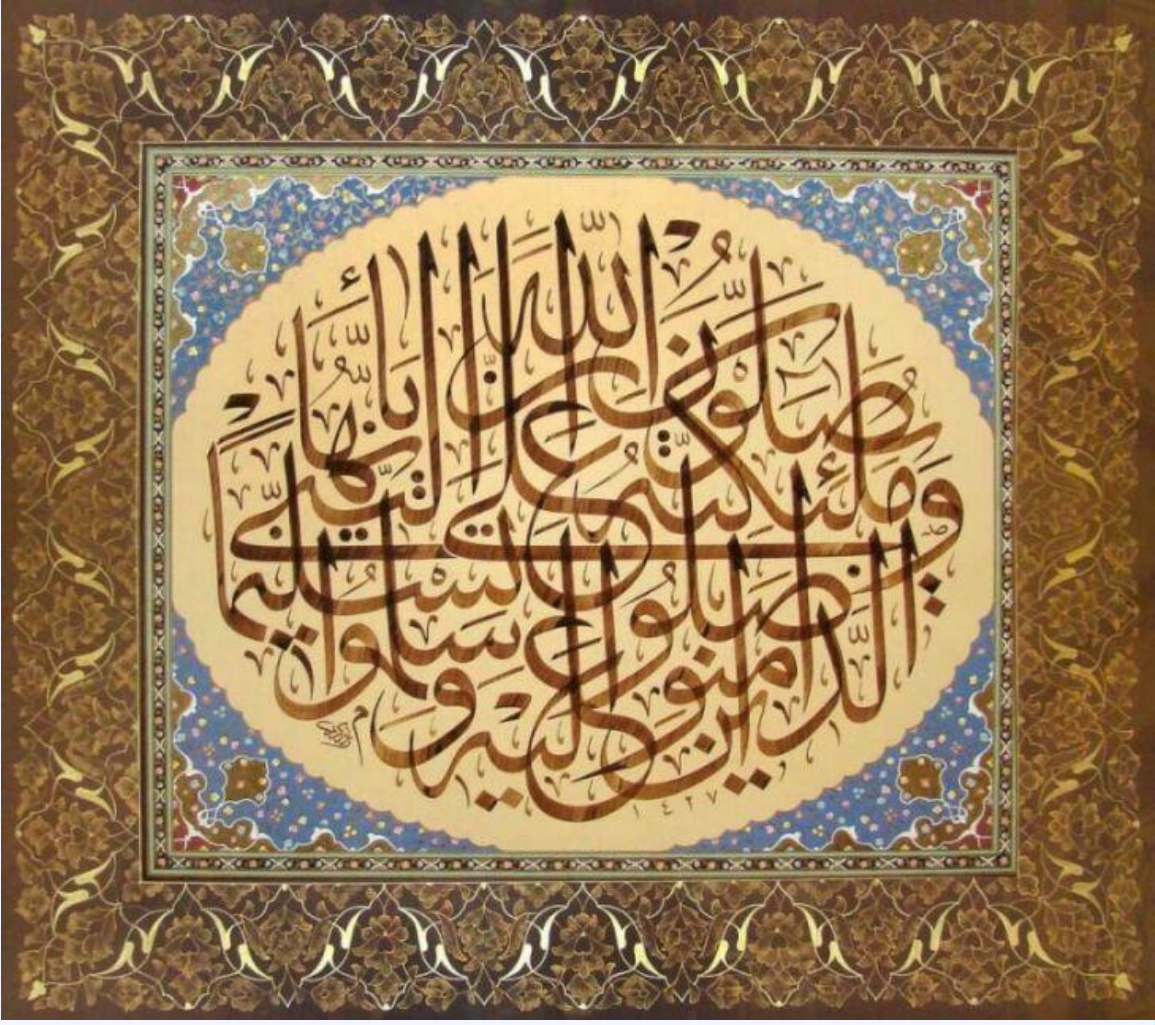 إن الله وملائكته يصلون على النبي يا أيها الذين آمنوا صلوا عليه وسلموا تسليما
١٤٢٧